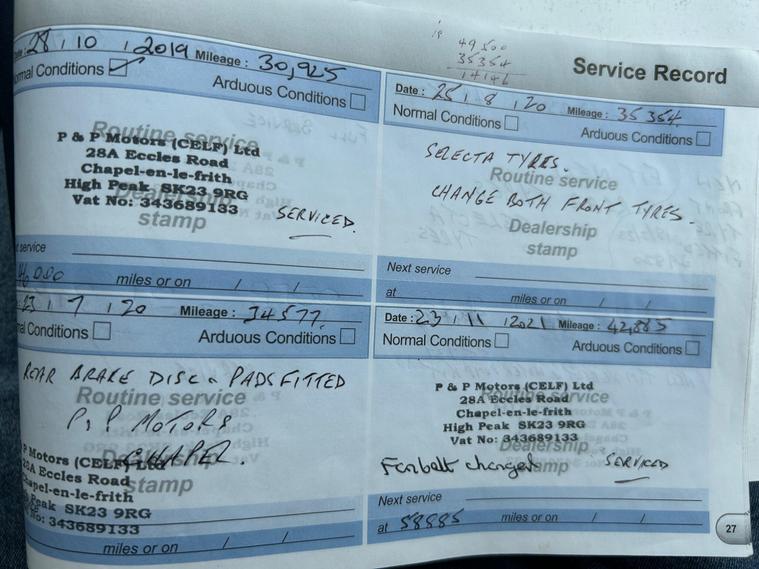 49,500
35354
14146
Service Record
28 / 10 / 2019 Mileage : 30,925
Conditions
Arduous Conditions
Routine service
P & P Motors (CELF) Ltd
28A Eccles Road
Chapel-en-le-frith
High Peak SK23 9RG
Vat No: 343689133
Dealership
stamp
SERVICED.
service
miles or on / /
Date : 25 / 8 / 20 Mileage : 35354
Normal Conditions
Arduous Conditions
SELECTA TYRES.
Routine service
CHANGE BOTH FRONT TYRES.
Dealership
stamp
Next service
at miles or on / /
23 / 7 / 20 Mileage : 34577
Conditions
Arduous Conditions
REAR BRAKE DISC & PADS FITTED
Routine service
P & P MOTORS
CHAPEL.
Motors (CELF) Ltd
28A Eccles Road
Chapel-en-le-frith
Peak SK23 9RG
No: 343689133
stamp
miles or on / /
Date : 23 / 11 / 2021 Mileage : 42,885
Normal Conditions
Arduous Conditions
P & P Motors (CELF) Ltd
28A Eccles Road
Routine service
Chapel-en-le-frith
High Peak SK23 9RG
Vat No: 343689133
Dealership
Fanbelt changed
stamp
SERVICED
Next service
at 58885 miles or on / /
27